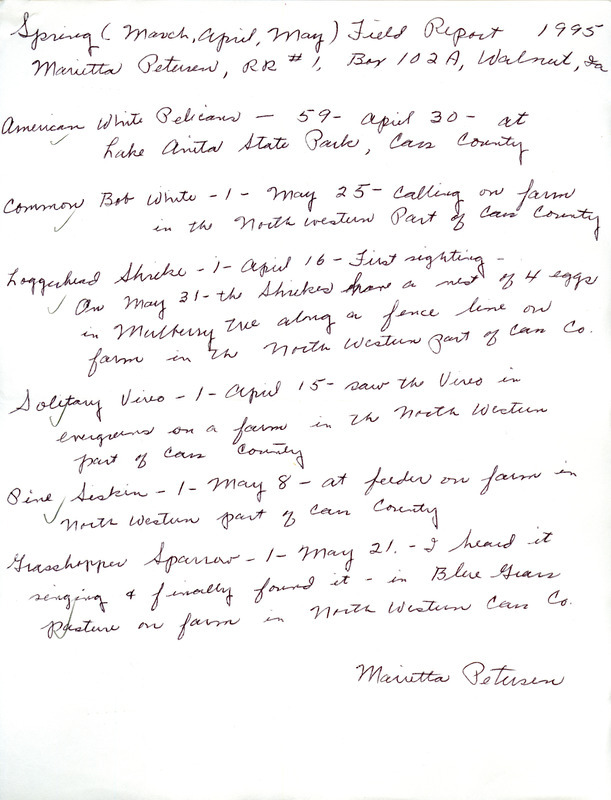 Spring (March, April, May) Field Report 1995
Marietta Petersen, RR #1, Box 102A, Walnut, Ia
American White Pelicans - 59 - April 30 - at
Lake Anita State Park, Cass County
Common Bob White - 1 - May 25 - Calling on farm
in the North western Part of Cass County
Loggerhead Shrike - 1 - April 16 - First sighting -
On May 31 - the Shrikes have a nest of 4 eggs
in Mulberry tree along a fence line on
farm in the North Western part of Cass Co.
Solitary Vireo - 1 - April 15 - saw the Vireo in
evergreens on a farm in the North Western
part of Cass County
Pine Siskin - 1 - May 8 - at feeder on farm in
North Western part of Cass County
Grasshopper Sparrow - 1 - May 21. - I heard it
singing & finally found it - in Blue Grass
Pasture on farm in North Western Cass Co.
Marietta Petersen